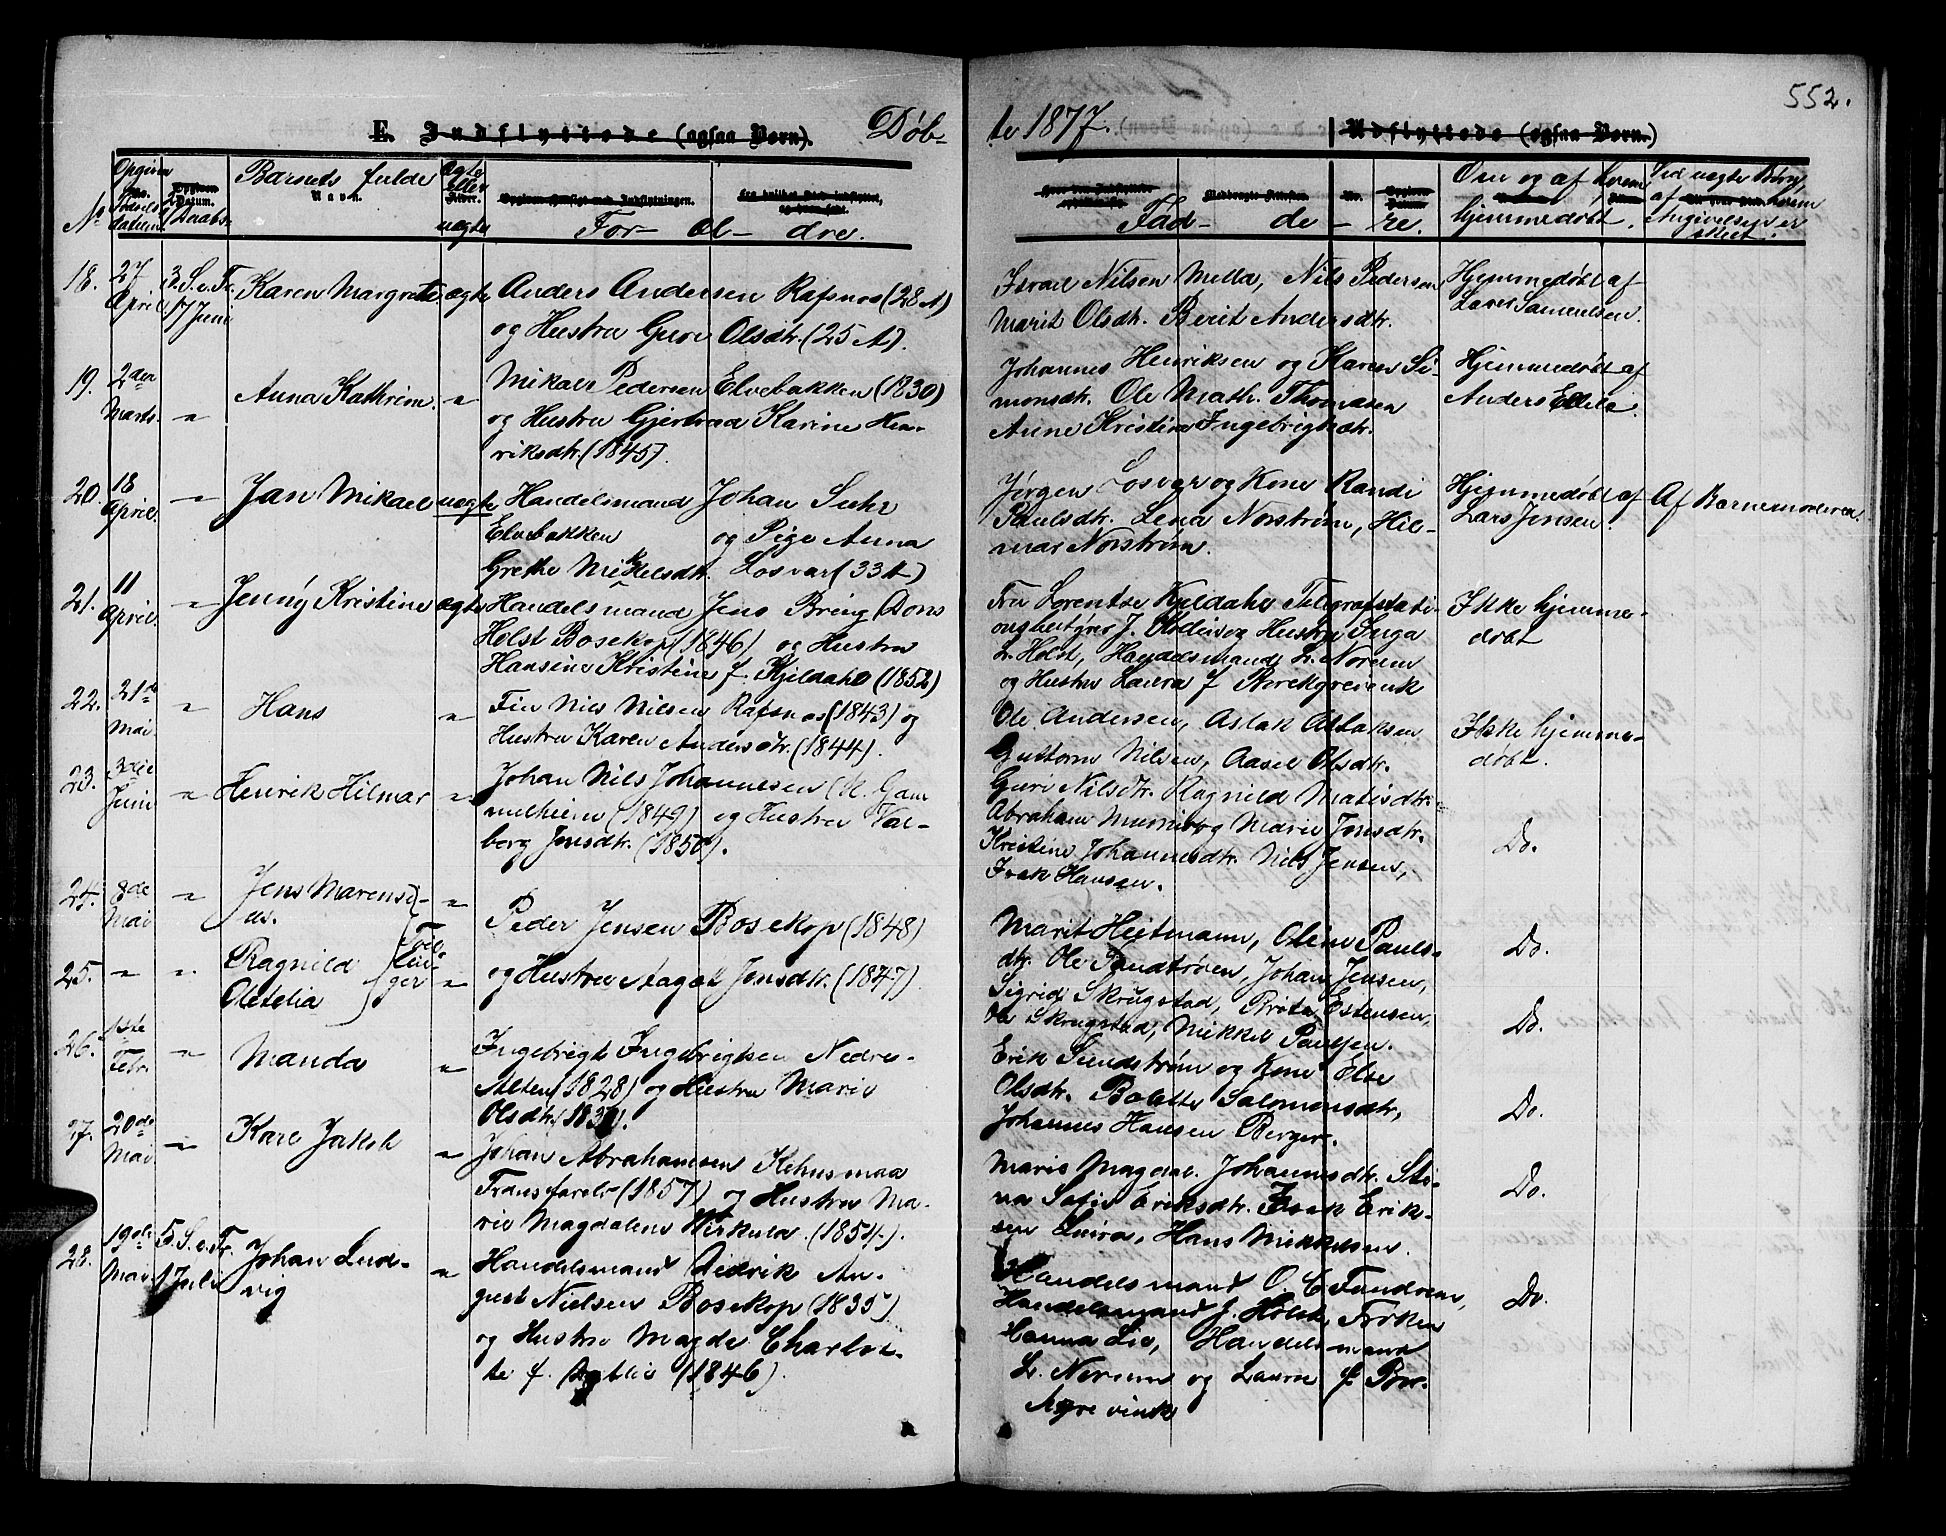 552.
E. Indflyttede (ogsaa Børn). Døb-
te 1877. Udflyttede (ogsaa Børn.)
No Opgiven Fødselsdatum. Daabs- Barnets fulde Navn. Ægte eller uægte For- æl- dre.
Fad- de- re. Om og af hvem hjemmedøbt. Ved uægte Børn, af hvem Angivelsen er skeet.
18. 27 April 3 S. e. Tr. 17 Juni Karen Margrete ægte Anders Andersen Rafsnos (28 A)
og Hustru Guri Olsdtr. (25 A).
Israd Nilsen Mella, Nils Pedersen
Marit Olsdtr. Berit Andersdtr.
Hjemmedøbt af
Lars Samuelsen.
19. 2den Marts. " Anna Kathrine. " Mikael Pedersen Elvebakken (1830)
og Hustru Gjertrud Karine Hen-
riksdtr. (1845).
Johannes Henriksen og Karen Si-
monsdtr. Ole Math. Thomasen
Anne Kristine Ingebrigtsdtr.
Hjemmedøbt af
Anders
20. 18 April. " Jan Mikael uægte Handelsmand Johan Suhr
Elvebakken og Pige Anna
Grethe Mikkelsdtr. Losvar (33 A)
Jørgen Losvar og Kone Randi
Paulsdtr. Lena Norstrøm, Hil-
mar Norstrøm.
Hjemmedøbt af
Lars Jensen.
Af Barnemoderen.
21. 11 April. " Jenny Kristine ægte Handelsmand Jens Bring Dons
Holst Bosekop (1846) og Hustru
Hansine Kristine f. Kjeldahl (1852)
Fru Lorentse Kjeldahl Telegrafstati-
onsbestyrer J. og Hustru Inga
L. Holst, Handelsmand L. Norum
og Hustru Laura f.
Ikke hjemme-
døbt
22. 21de Mai " Hans " Fin Nils Nilsen Rafsnos (1843) og
Hustru Karen Andersdtr. (1844).
Ole Andersen, Aslak Aslaksen
Guttorm Nilsen, Aasel Olsdtr.
Guri Nilsdtr. Ragnild Matisdtr.
Ikke hjemme-
døbt.
23. 3die Juni " Henrik Hilmar " Johan Nils Johannesen (K. Gam-
melheim (1849) og Hustru Val-
borg Jonsdtr. (1850).
Abraham og Marie Jonsdtr.
Kristine Johannesdtr. Nils Jensen,
Isak Hansen.
Do.
24. 8de Mai " Jens Marensi-
us. " Peder Jensen Bosekop (1848)
Tvil-
lin-
ger
25. " " Ragnild
Oletelia " og Hustru Aagot Jonsdtr. (1847).
Marit Heitmann, Oline Pauls-
dtr. Ole Sandtrøen, Johan Jensen,
Sigrid Skrugstad, Brita Estensen,
Ole Skrugstad, Mikkel Paulsen.
Do.
Do.
26. 1ste Febr. " Manda " Ingebrigt Ingebrigtsen Nedre-
Alten (1828) og Hustru Marie
Olsdtr. (183).
Erik Sundstrøm og Kone Else
Olsdtr. Bolette Salomonsdtr,
Johannes Hansen Berger.
Do.
27. 20de Mai " Karl Jakob " Johan Abrahamsen Kehusmaa
Fransfarelv (1857) og Hustru Ma-
rie Magdalene Wirkula. (1854).
Marie Magdal. Johannesdtr. Sti-
na Sofie Eriksdtr. Isak Erik-
sen Luira, Hans Mikkelsen.
Do.
28. 19de Mai 5. S. e. Tr. 1 Juli Johan Lud-
vig " Handelsmand Didrik Au-
gust Nielsen Bosekop (1835)
og Hustru Magda Charlot-
te f. (1846).
Handelsmand O. C. Fandrem,
Handelsmand J. Holst, Frøken
Hanna Lie, Handelsmand
L. Norum og Laura f. Bor-
Agrevink
Do.